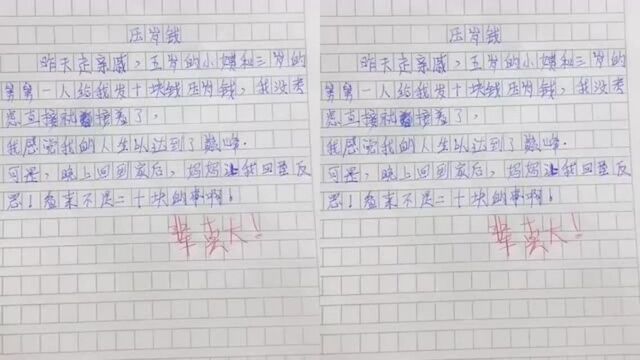 压岁钱
昨天走亲戚，五岁的小姨和三岁的
舅舅一人给我发十块钱压岁钱，我没考
虑直接就接着了，
我感觉我的人生以达到了巅峰.
可是，晚上回到家后，妈妈让我面壁反
思！看来不是二十块的事啊！
辈真大！
压岁钱
昨天走亲戚，五岁的小姨和三岁的
舅舅一人给我发十块钱压岁钱，我没考
虑直接就接着了，
我感觉我的人生以达到了巅峰.
可是，晚上回到家后，妈妈让我面壁反
思！看来不是二十块的事啊！
辈真大！